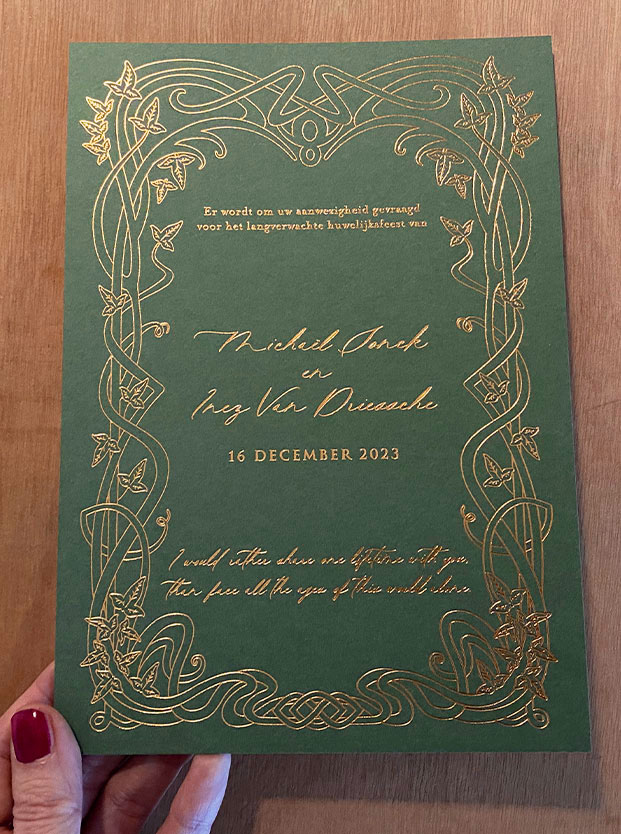 Er wordt om uw aanwezigheid gevraagd
voor het langverwachte huwelijksfeest van
Michaël Jonck
en
Inez Van Driessche
16 DECEMBER 2023
I would rather share one lifetime with you,
than face all the ages of this world alone.